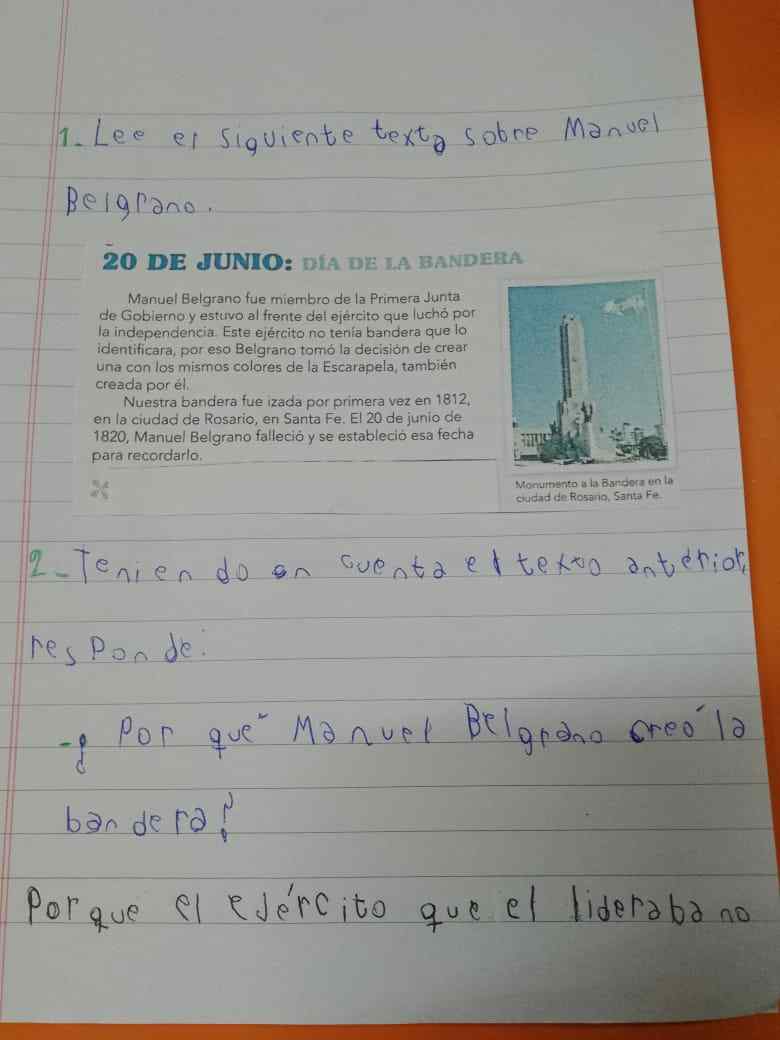 1. Lee el siguiente texto sobre Manuel
Belgrano.
20 DE JUNIO: DÍA DE LA BANDERA
Manuel Belgrano fue miembro de la Primera Junta
de Gobierno y estuvo al frente del ejército que luchó por
la independencia. Este ejército no tenía bandera que lo
identificara, por eso Belgrano tomó la decisión de crear
una con los mismos colores de la Escarapela, también
creada por él.
Nuestra bandera fue izada por primera vez en 1812,
en la ciudad de Rosario, en Santa Fe. El 20 de junio de
1820, Manuel Belgrano falleció y se estableció esa fecha
para recordarlo.
Monumento a la Bandera en la
ciudad de Rosario, Santa Fe.
2- Teniendo en cuenta el texto anterior,
responde:
-¿Por qué Manuel Belgrano creó la
bandera?
Porque el ejército que el lideraba no